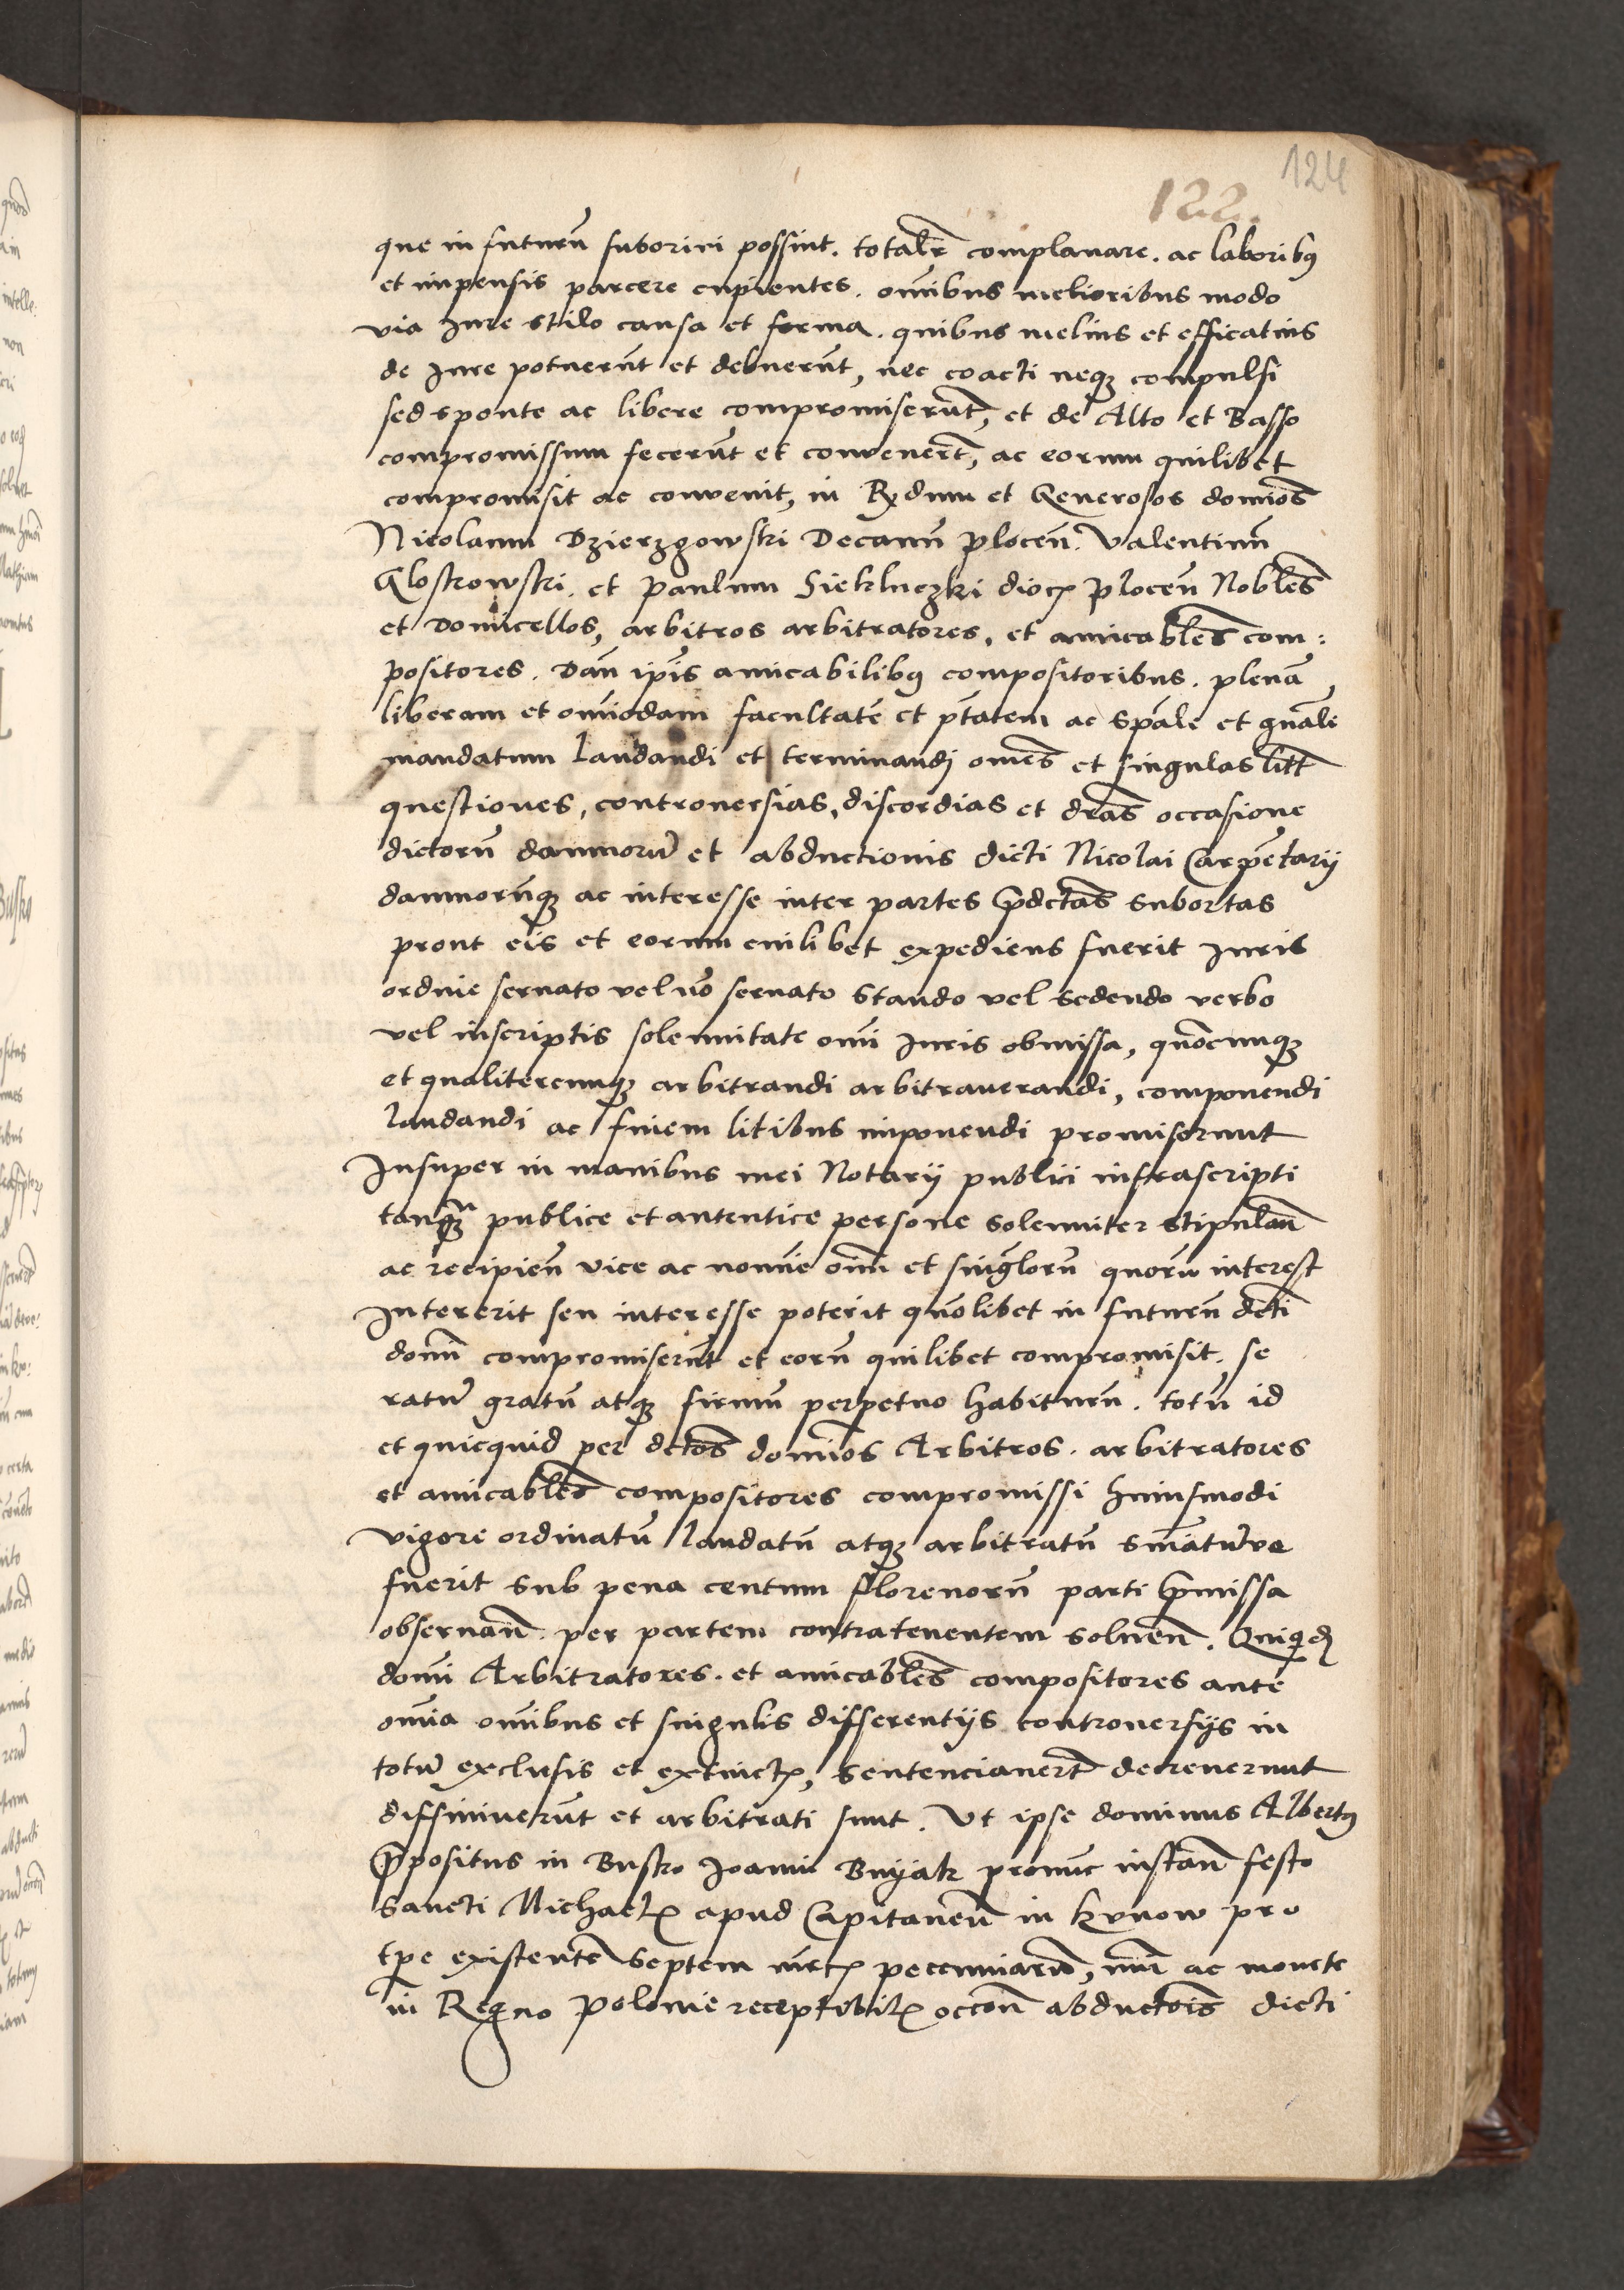 124
122.
que in futurũ suboriri possint. totalr̃ complanare. ac laboribꝯ
et impensis parcere cupientes. om̃ibus melioribus modo
via Jure stilo causa et forma. quibus melius et efficatius
de Jure potuerũt et debuerũt, nec coacti neqꝫ compulsi
sed sponte ac libere compromiserũt, et de Alto et Basso
compromissum fecerũt et convenerũt, ac eorum quilibet
compromisit ac convenit, in Rꝫdum et Generosos domiõs
Nicolaum Dzierzgowski Decanũ plocen̄. Valentinũ
Gloskowski. et paulum Siekluczki dioc̄ plocen̄ Nobl̃es
et Domicellos, arbitros arbitratores, et amicabl̃es com:
positores. Dan̄ ip̃is amicabilibꝯ compositoribus. plenã
liberam et om̃iodam facultatẽ et p̃tatem ac sp̃ale et gñale
mandatum laudandi et terminandj om̃es et singulas litt̃
questiones, controuersias, discordias et dr̃as occasione
dictorũ damnorũ et abductionis dicti Nicolai Carpẽtarij
damnorũqꝫ ac interesse inter partes p̃dctas subortas
prout eis et eorum cuilibet expediens fuerit Juris
ordine seruato vel nõ seruato stando vel sedendo verbo
vel inscriptis solennitate om̃i Juris obmissa, quõcunqꝫ
et qualitercunqꝫ arbitrandi arbitrauerandi, componendi
laudandi ac finem litibus imponendi promiserunt
Insuper in manibus mei Notarij publici infrascripti
tanqꝫ publice et autentice persone solenniter stipulan̄
ac recipien̄ vice ac nomĩe om̃i et singlorũ quorũ interest
Intererit seu interesse poterit quõlibet in futurũ dcti
domi compromiserũt et eorũ quilibet compromisit. se
ratũ gratũ atqꝫ firmũ perpetuo habiturũ. totũ id
et quicquid per dctos domĩos Arbitros. arbitratores
et amicabl̃es compositores compromissi huiusmodi
vigore ordinatũ laudatũ atqꝫ arbitratũ sñiatũve
fuerit sub pena centum florenorũ parti p̃missa
obseruan̄. per partem contrauenentem soluen̄. Quiqꝫdꝫ
domi Arbitratores. et amicabl̃es compositores ante
om̃ia om̃ibus et singulis differentijs controuersijs in
totũ exclusis et extinct̄, sentencianert̃ decreuerunt
diffiniuerũt et arbitrati sunt. Vt ipse dominus Albertꝯ
p̃positus in Busko Joanni Buyak pronũc instan̄ festo
Sancti Michael̄ apud Capitaneũ in kunow pro
tp̃e existentẽ septem mrc̄ pecuniarũ, nũi ac monete
in Regno Polonie receptibil̄ occon̄ abductõis dicti